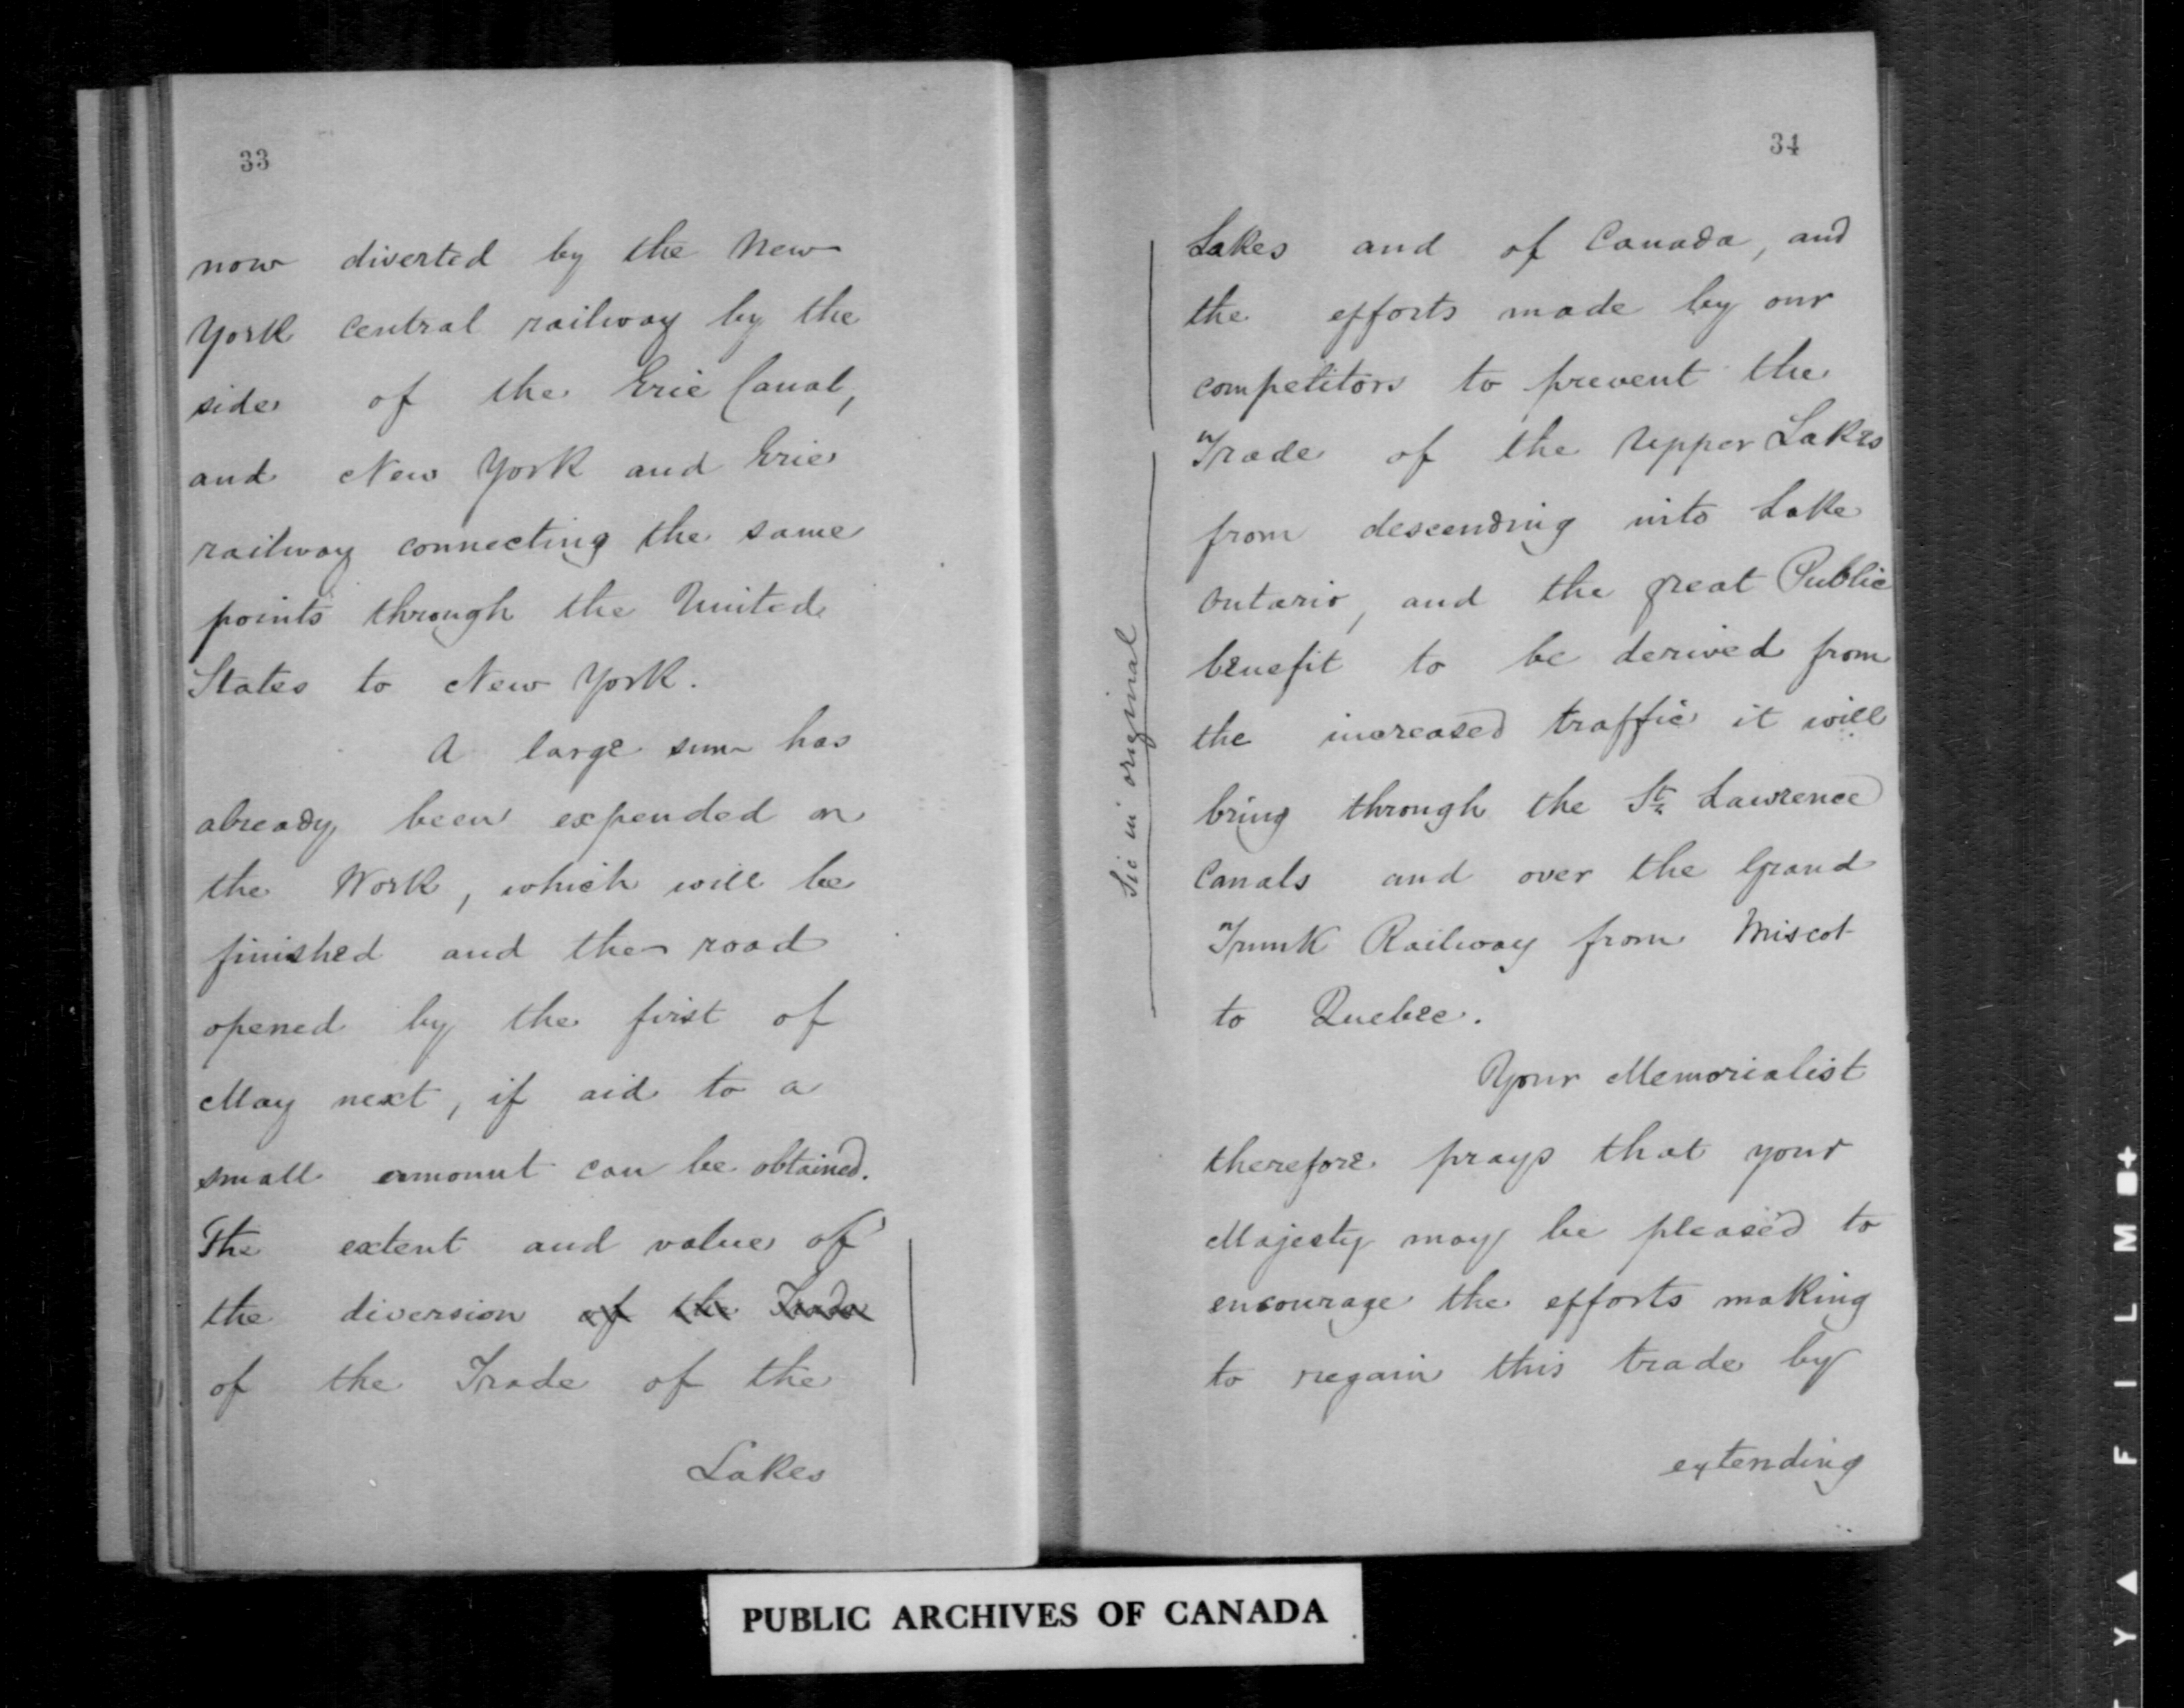 33
now diverted by the New
York Central railway by the
side of the Erie Canal,
and New York and Erie
railway connecting the same
points through the United
States to New York.
A large sum has
already been expended on
the Work, which will be
finished and the road
opened by the first of
May next, if aid to a
small amount can be obtained.
The extent and value of
the diversion of the Trade
of the Trade of the
Lakes
34
Lakes and of Canada, and
the efforts made by our
competitors to prevent the
Trade of the Upper Lakes
from descending into Lake
Ontario, and the great Public
benefit to be derived from
the increased traffic it will
bring through the St. Lawrence
Canals and over the Grand
Trunk Railway from Miscot
to Quebec.
Your Memorialist
therefore prays that your
Majesty may be pleased to
encourage the efforts making
to regain this trade by
extending
Sic in original
PUBLIC ARCHIVES OF CANADA
Y ▲ F I L M